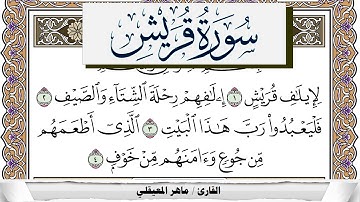 سورة قريش
لِإِيلَٰفِ قُرَيْشٍ ١ إِۦلَٰفِهِمْ رِحْلَةَ ٱلشِّتَآءِ وَٱلصَّيْفِ ٢
فَلْيَعْبُدُوا۟ رَبَّ هَٰذَا ٱلْبَيْتِ ٣ ٱلَّذِىٓ أَطْعَمَهُم
مِّن جُوعٍ وَءَامَنَهُم مِّنْ خَوْفٍۭ ٤
القارئ / ماهر المعيقلي